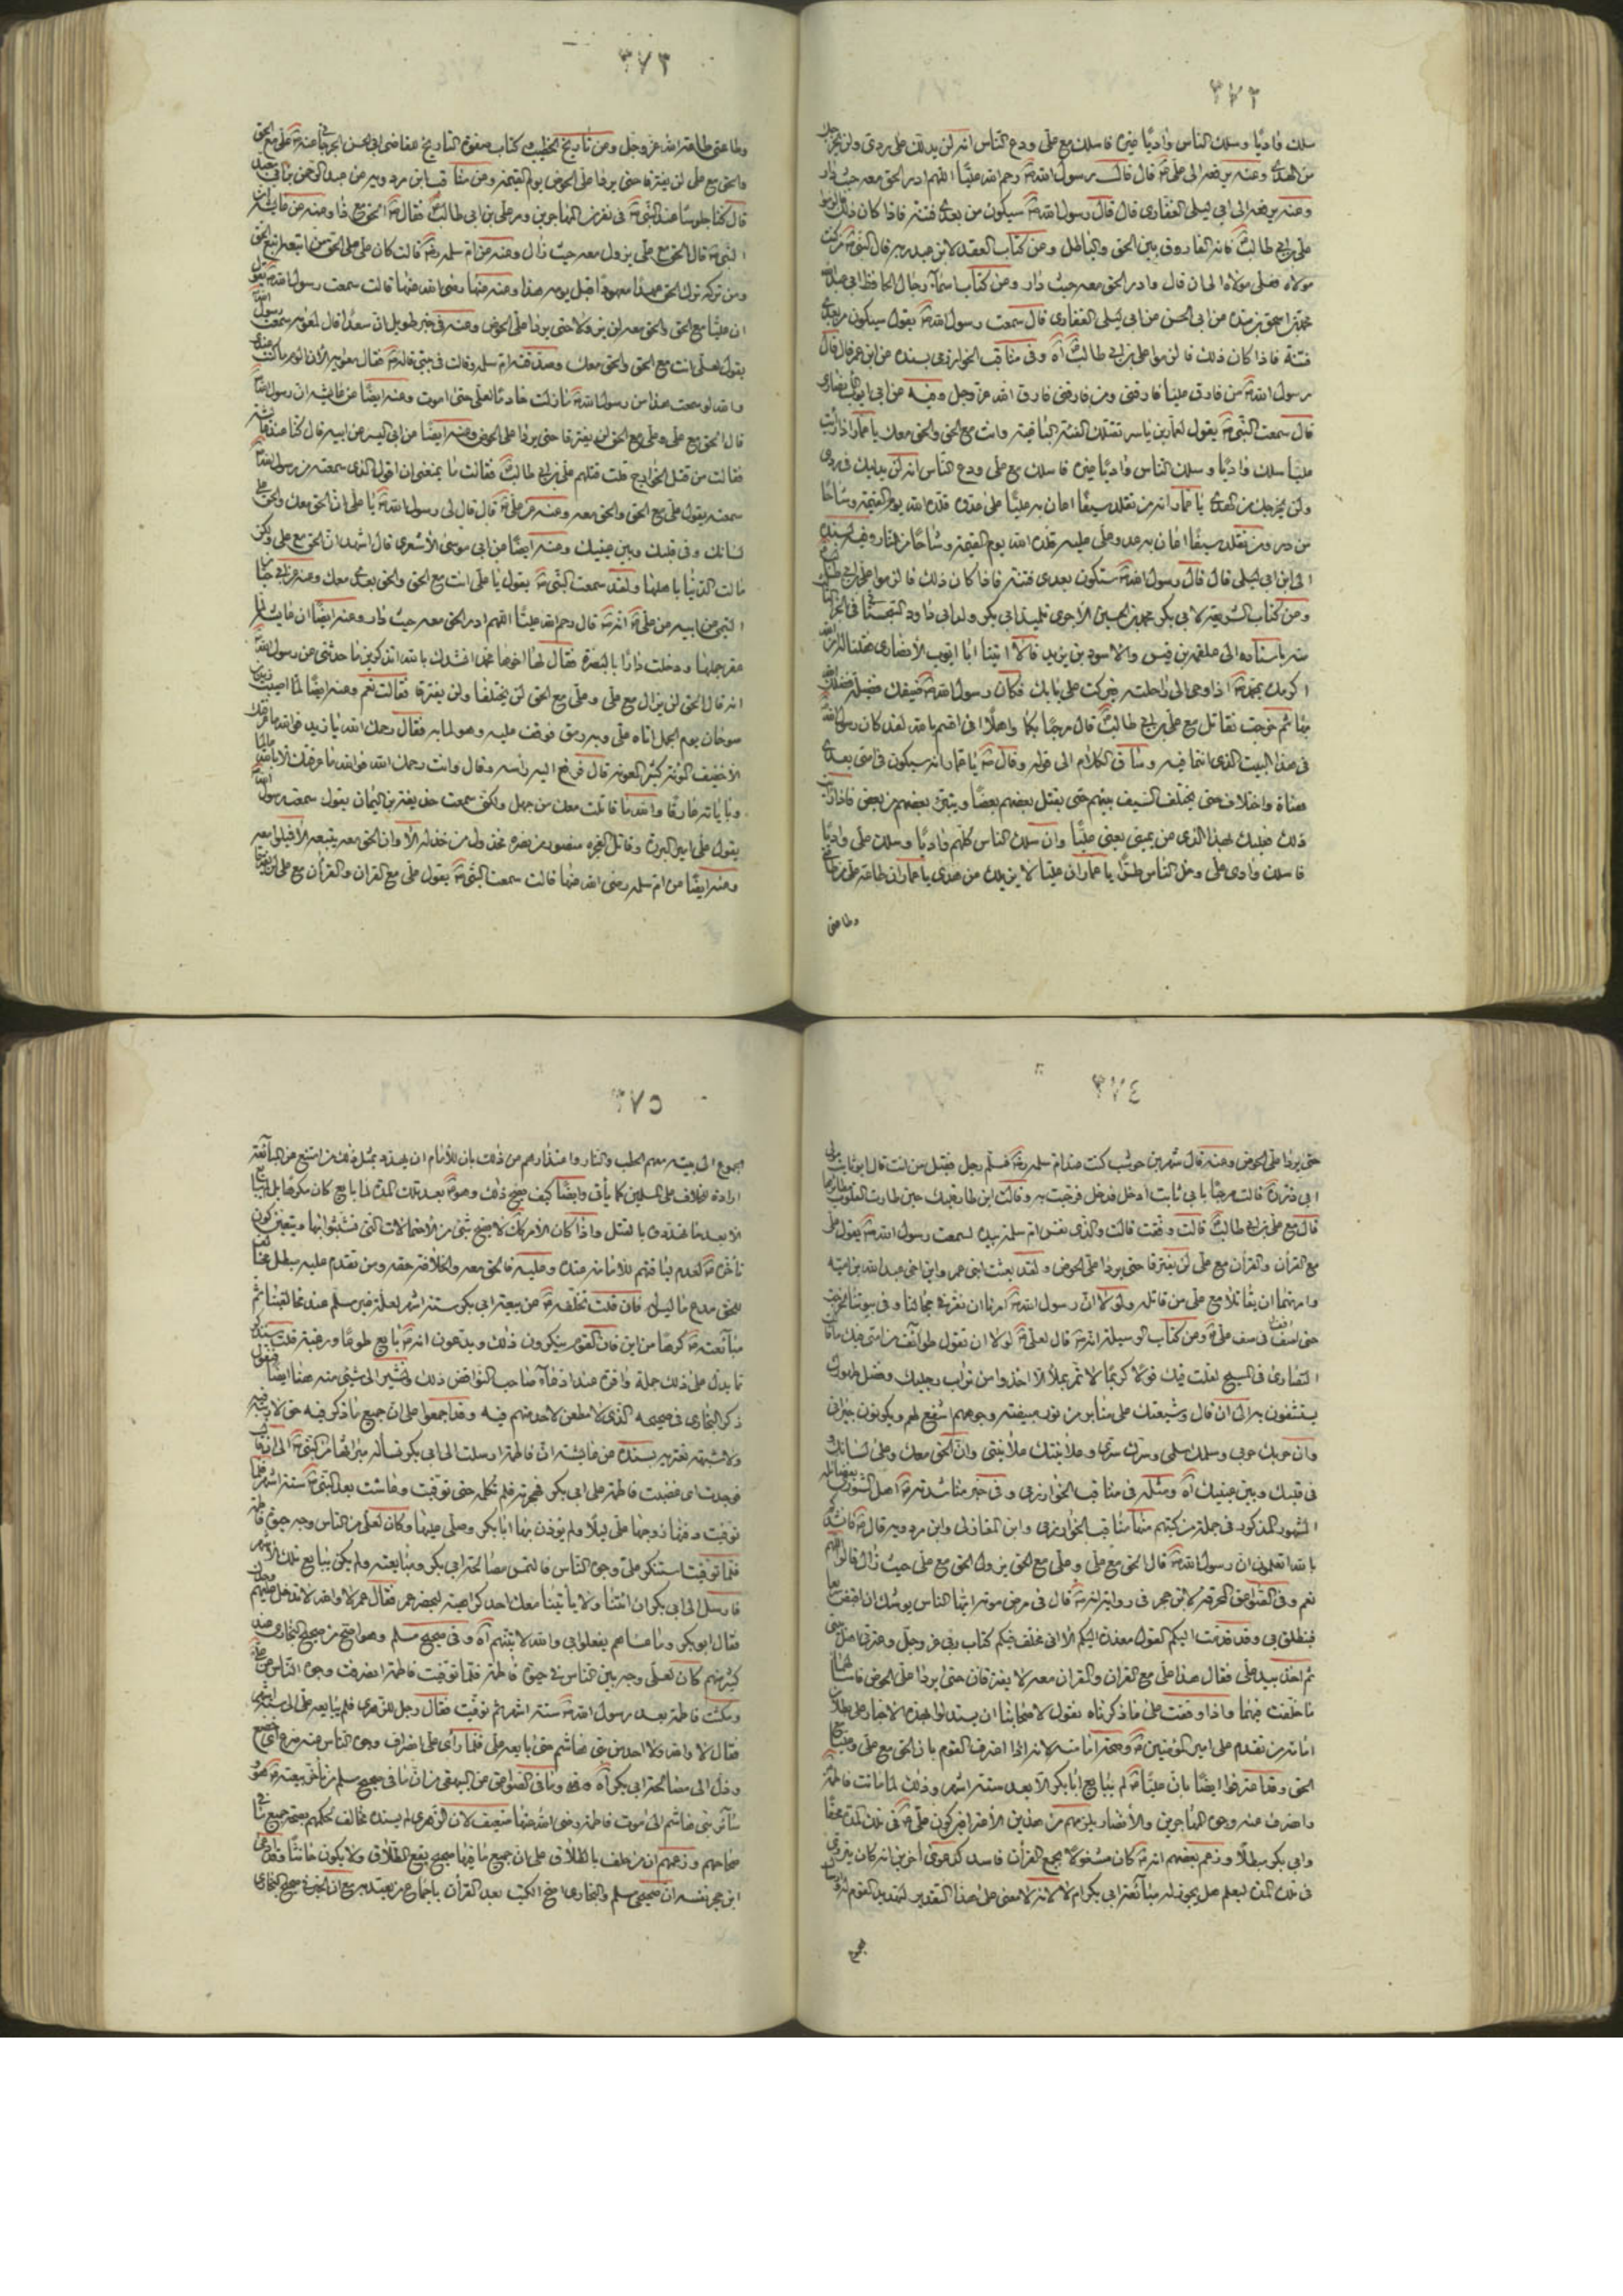 ٣٧٢
سلك واديًا وسلك الناس واديًا غيره فاسلك مع علي ودع الناس انه لن يدلك على ردى ولن يخرجك
من الهدى وعنه يرفعه الى علي قال قال رسول الله رحم الله عليًّا اللهم ادر الحق معه حيث دار
وعنه يرفعه الى ابي ليلى الغفاري قال قال رسول الله سيكون من بعدى فتنة فاذا كان ذلك فالزموا
علي بن ابي طالب فانه الفاروق بين الحق والباطل ومن كتاب العقد لابن عبد ربه قال النبي من كنت
مولاه فعلي مولاه الى ان قال وادر الحق معه حيث دار ومن كتاب اسماء رجال الحافظ ابي عبد الله
محمد بن اسحق بن منده عن ابي الحسن عن ابي ليلى الغفاري قال سمعت رسول الله يقول سيكون من بعدي
فتنة فاذا كان ذلك فالزموا علي بن ابي طالب آه وفي مناقب الخوارزمي بسنده عن ابن عمر قال قال
رسول الله من فارق عليا فارقني ومن فارقني فارق الله عز وجل وفيه عن ابي ايوب الانصاري
قال سمعت النبي يقول لعمار بن ياسر تقتلك الفئة الباغية وانت مع الحق والحق معك يا عمار اذا رأيت
عليا سلك واديًا وسلك الناس واديًا غيره فاسلك مع علي ودع الناس انه لن يدليك في ردى
ولن يخرجك من الهدى يا عمار انه من تقلد سيفًا اعان به عليًّا على عدوه قلده الله يوم القيمة وشاحًا
من در ومن تقلد سيفًا اعان به عدو علي عليه قلده الله يوم القيمة وشاحًا من نار وفيه بسنده
الى ابن ابي ليلى قال قال رسول الله ستكون بعدى فتنة فاذا كان ذلك فالزموا علي بن ابي طالب
ومن كتاب الشريعة لابي بكر محمد بن الحسين الآجري تلميذ ابي بكر ولد ابي داود السجستاني في الجزء
باسناده الى علقمة بن قيس والاسود بن يزيد قالا اتينا ابا ايوب الانصاري فقلنا ان الله
اكرمك بمحمد اذ اوحى الى راحلته فبركت على بابك فكان رسول الله ضيفك فضيلة فضلك
بها ثم خرجت تقاتل مع علي بن ابي طالب قال مرحبًا بكما واهلًا انى اقسم بالله لقد كان رسول الله
في هذا البيت الذى انتما فيه وساق الكلام الى قوله وقال يا عمار انه سيكون في امتى بعدى
هناة واختلاف حتى يختلف السيف بينهم حتى يقتل بعضهم بعضًا ويتبرئ بعضهم من بعض فاذا رأيت
ذلك فعليك بهذا الذى عن يميني يعني عليًّا وان سلك الناس كلهم واديًا وسلك علي واديًا
فاسلك وادى علي وخل الناس طرًّا يا عمار ان عليا لا يزيلك عن هدى يا عمار ان طاعة علي من طاعتي
وطاعتي
٣٧٣
وطاعتي طاعة الله عز وجل ومن تاريخ الخطيب وكتاب صفوة التاريخ علي مع الحق
والحق مع علي لن يفترقا حتى يردا علي الحوض يوم القيمة ومن مناقب ابن مردويه
قال كنا جلوسًا عند النبي في نفر من المهاجرين ومر علي بن ابي طالب فقال الحق مع ذا وعنه عن عايشة ان
النبي قال الحق مع علي يزول معه حيث زال وعنه عن ام سلمة قالت كان علي على الحق من اتبعه اتبع الحق
ومن تركه ترك الحق عهدًا معهودًا قبل يومه هذا وعنه عنها رضي الله عنها قالت سمعت رسول الله يقول
ان عليًّا مع الحق والحق معه لن يزولا حتى يردا علي الحوض وعنه في خبر طويل ان سعدًا قال لمعوية سمعت رسول الله
يقول لعلي انت مع الحق والحق معك وصدقته ام سلمة وقالت في بيتي قاله فقال معوية
والله لو سمعت هذا من رسول الله ما زلت خادمًا لعلي حتى اموت وعنه ايضًا عن عايشة ان رسول الله
قال الحق مع علي وعلي مع الحق لن يفترقا حتى يردا علي الحوض وعنه ايضًا عن ابي اليسر عن ابيه قال كنا عند عايشة
فقالت من قتل الخوارج قلت قتلهم علي بن ابي طالب فقالت ما يمنعني ان اقول الذى سمعته من رسول الله
سمعته يقول علي مع الحق والحق معه وعنه عن علي قال قال لي رسول الله يا علي ان الحق معك والحق على
لسانك وفي قلبك وبين عينيك وعنه ايضًا عن ابي موسى الاشعري قال اشهد ان الحق مع علي ولكن
مالت الدنيا باهلها ولقد سمعت النبي يقول يا علي انت مع الحق والحق بعدى معك وعنه عن ابي حيان
التيمي عن ابيه عن علي انه قال رحم الله عليًّا اللهم ادر الحق معه حيث دار وعنه ايضًا ان عايشة لما
عقر جملها ودخلت دارًا بالبصرة فقال لها اخوها محمد انشدك بالله اتذكرين ما حدثتني عن رسول الله
انه قال الحق لن يزال مع علي وعلي مع الحق لن يختلفا ولن يفترقا فقالت نعم وعنه ايضًا لما اصيب زيد بن
صوحان يوم الجمل اتاه علي وبه رمق فوقف عليه وهو لما به فقال رحمك الله يا زيد فوالله ما عرفتك
الا خفيف المؤنة كثير المعونة قال فرفع اليه راسه وقال وانت رحمك الله فوالله ما عرفتك الا بالله عالما
وباياته عارفًا والله ما قاتلت معك من جهل ولكني سمعت حذيفة بن اليمان يقول سمعت رسول الله
يقول علي امير البررة وقاتل الفجرة منصور من نصره مخذول من خذله الا وان الحق معه يتبعه الا فميلوا معه
وعنه ايضًا عن ام سلمة رضي الله عنها قالت سمعت النبي يقول علي مع القران والقرآن مع علي لن يفترقا
٣٧٤
حتى يردا علي الحوض وعنه قال شهر بن حوشب كنت عند ام سلمة فسلم رجل فقيل من انت قال ابو ثابت مولى
ابي ذر قالت مرحبًا بابي ثابت ادخل فدخل فرحبت به وقالت اين طار قلبك حين طارت القلوب مطايرها
قال مع علي بن ابي طالب قالت وفقت قالت والذى نفس ام سلمة بيده لسمعت رسول الله يقول علي
مع القرآن والقرآن مع علي لن يفترقا حتى يردا علي الحوض ولقد بعثت ابني عمر وابن اخي عبد الله بن امية
وامرتهما ان يقاتلا مع علي من قاتله ولولا ان رسول الله امرنا ان نقر في حجالنا وفي بيوتنا لخرجت
حتى اقف في صف علي ومن كتاب الوسيلة انه قال لعلي لولا ان تقول طوائف من امتي فيك ما قالت
النصارى في المسيح لقلت فيك قولًا كريمًا لا تمر بملأ الا اخذوا من تراب رجليك وفضل طهورك
يستشفون به الى ان قال وشيعتك على منابر من نور مبيضة وجوههم اشفع لهم ويكونون جيراني
وان حربك حربي وسلمك سلمي وسرك سري وعلانيتك علانيتي وان الحق معك وعلى لسانك
في قلبك وبين عينيك آه ومثله في مناقب الخوارزمي وفي خبر مناشدته اهل الشورى
المشهور المذكور في جملة من كتبهم منها مناقب الخوارزمي وابن المغازلي وابن مردويه قال فانشدكم
بالله اتعلمون ان رسول الله قال الحق مع علي وعلي مع الحق يزول الحق مع علي حيث زال قالوا اللهم
نعم وفي الصواعق المحرقة لابن حجر في رواية انه قال في مرض موته ايها الناس يوشك ان اقبض
فينطلق بي وقد قدمت اليكم القول معذرة اليكم الا اني مخلف فيكم كتاب ربي عز وجل وعترتي اهل بيتي
ثم اخذ بيد علي فقال هذا علي مع القران والقران معه لا يفترقان حتى يردا علي الحوض فاسئلهما
ما خلفت فيهما واذا وقفت على ما ذكرناه نقول لاصحابنا ان يستدلوا بهذه الاخبار على بطلان
امامة من تقدم على امير المؤمنين وصحة امامته
الحق وقد اعترفوا ايضًا بان عليًّا لم يبايع ابا بكر الا بعد ستة اشهر وذلك لما ماتت فاطمة
وانصرف عنه وجوه المهاجرين والانصار
وابي بكر مبطلًا وزعم بعضهم انه كان مشغولًا بجمع القرآن فاسد كدعوى آخرين انه كان يتروى
في تلك المدة ليعلم هل يجوز له مبايعة ابي بكر ام لا لانه لا معنى على هذا التقدير لتهديد القوم له
٣٧٥
الجموع الى بيته معهم الحطب والنار واعتذارهم من ذلك بان للامام ان يهدد بمثل ذلك من امتنع من المبايعة
ارادة الخلاف على المسلمين كما يأتي وايضًا كيف يصح ذلك وهو بعد تلك المدة لما بايع كان مكرهًا بل ما بايع
الا بعد ما هددوه بالقتل واذا كان الامر كك لا يصح شئ من الاحتمالات التي تشبثوا بها ويتعين كون
الحق مدع ما ليس له فان قلت تخلفه عن بيعة ابي بكر ستة اشهر لعله غير مسلم عند مخالفينا ثم
مبايعته كرهًا من اين فان القوم ينكرون ذلك ويدعون انه بايع طوعًا ورغبة قلت
ذكر البخاري في صحيحه الذى لا مطعن لاحد منهم فيه وقد اجمعوا على ان جميع ما ذكر فيه حق لا ريب فيه
ولا شبهة تعتريه بسنده عن عايشة ان فاطمة ارسلت الى ابي بكر تسأله ميراثها من النبي الى ان قال
فوجدت اى غضبت فاطمة على ابي بكر فهجرته فلم تكلمه حتى توفيت وعاشت بعد النبي ستة اشهر فلما
توفيت دفنها زوجها علي ليلًا ولم يؤذن بها ابا بكر وصلى عليها وكان لعلي من الناس وجه حيوة فاطمة
فلما توفيت استنكر علي وجوه الناس فالتمس مصالحة ابي بكر ومبايعته ولم يكن يبايع تلك الاشهر
فارسل الى ابي بكر ان ائتنا ولا يأتينا معك احد كراهية ليحضر عمر فقال عمر لا والله لا تدخل عليهم وحدك
فقال ابو بكر وما عساهم يفعلوا بي والله لآتينهم آه وفي صحيح مسلم وهو اصح من صحيح البخاري عند
كثير منهم كان لعلي وجه بين الناس في حيوة فاطمة فلما توفيت فاطمة انصرفت وجوه الناس عن علي
ومكثت فاطمة بعد رسول الله ستة اشهر ثم توفيت فقال رجل للزهري فلم يبايعه علي الى ستة اشهر
فقال لا والله ولا احد من بني هاشم حتى بايعه علي فلما رأى علي انصراف وجوه الناس عنه ضرع
الى مصالحة ابي بكر آه وما في الصواعق عن البيهقي من ان ما في صحيح مسلم من تأخر بيعته هو
وسائر بني هاشم الى موت فاطمة رضي الله عنها ضعيف لان الزهري لم يسنده مخالف لحكمهم بصحة جميع ما في
صحاحهم وزعمهم ان من حلف بالطلاق على ان جميع ما فيها صحيح لم يقع الطلاق ولا يكون حانثًا وفي دعوى
ابن حجر نفسه ان صحيحي مسلم والبخاري اصح الكتب بعد القرآن باجماع من يعتد به